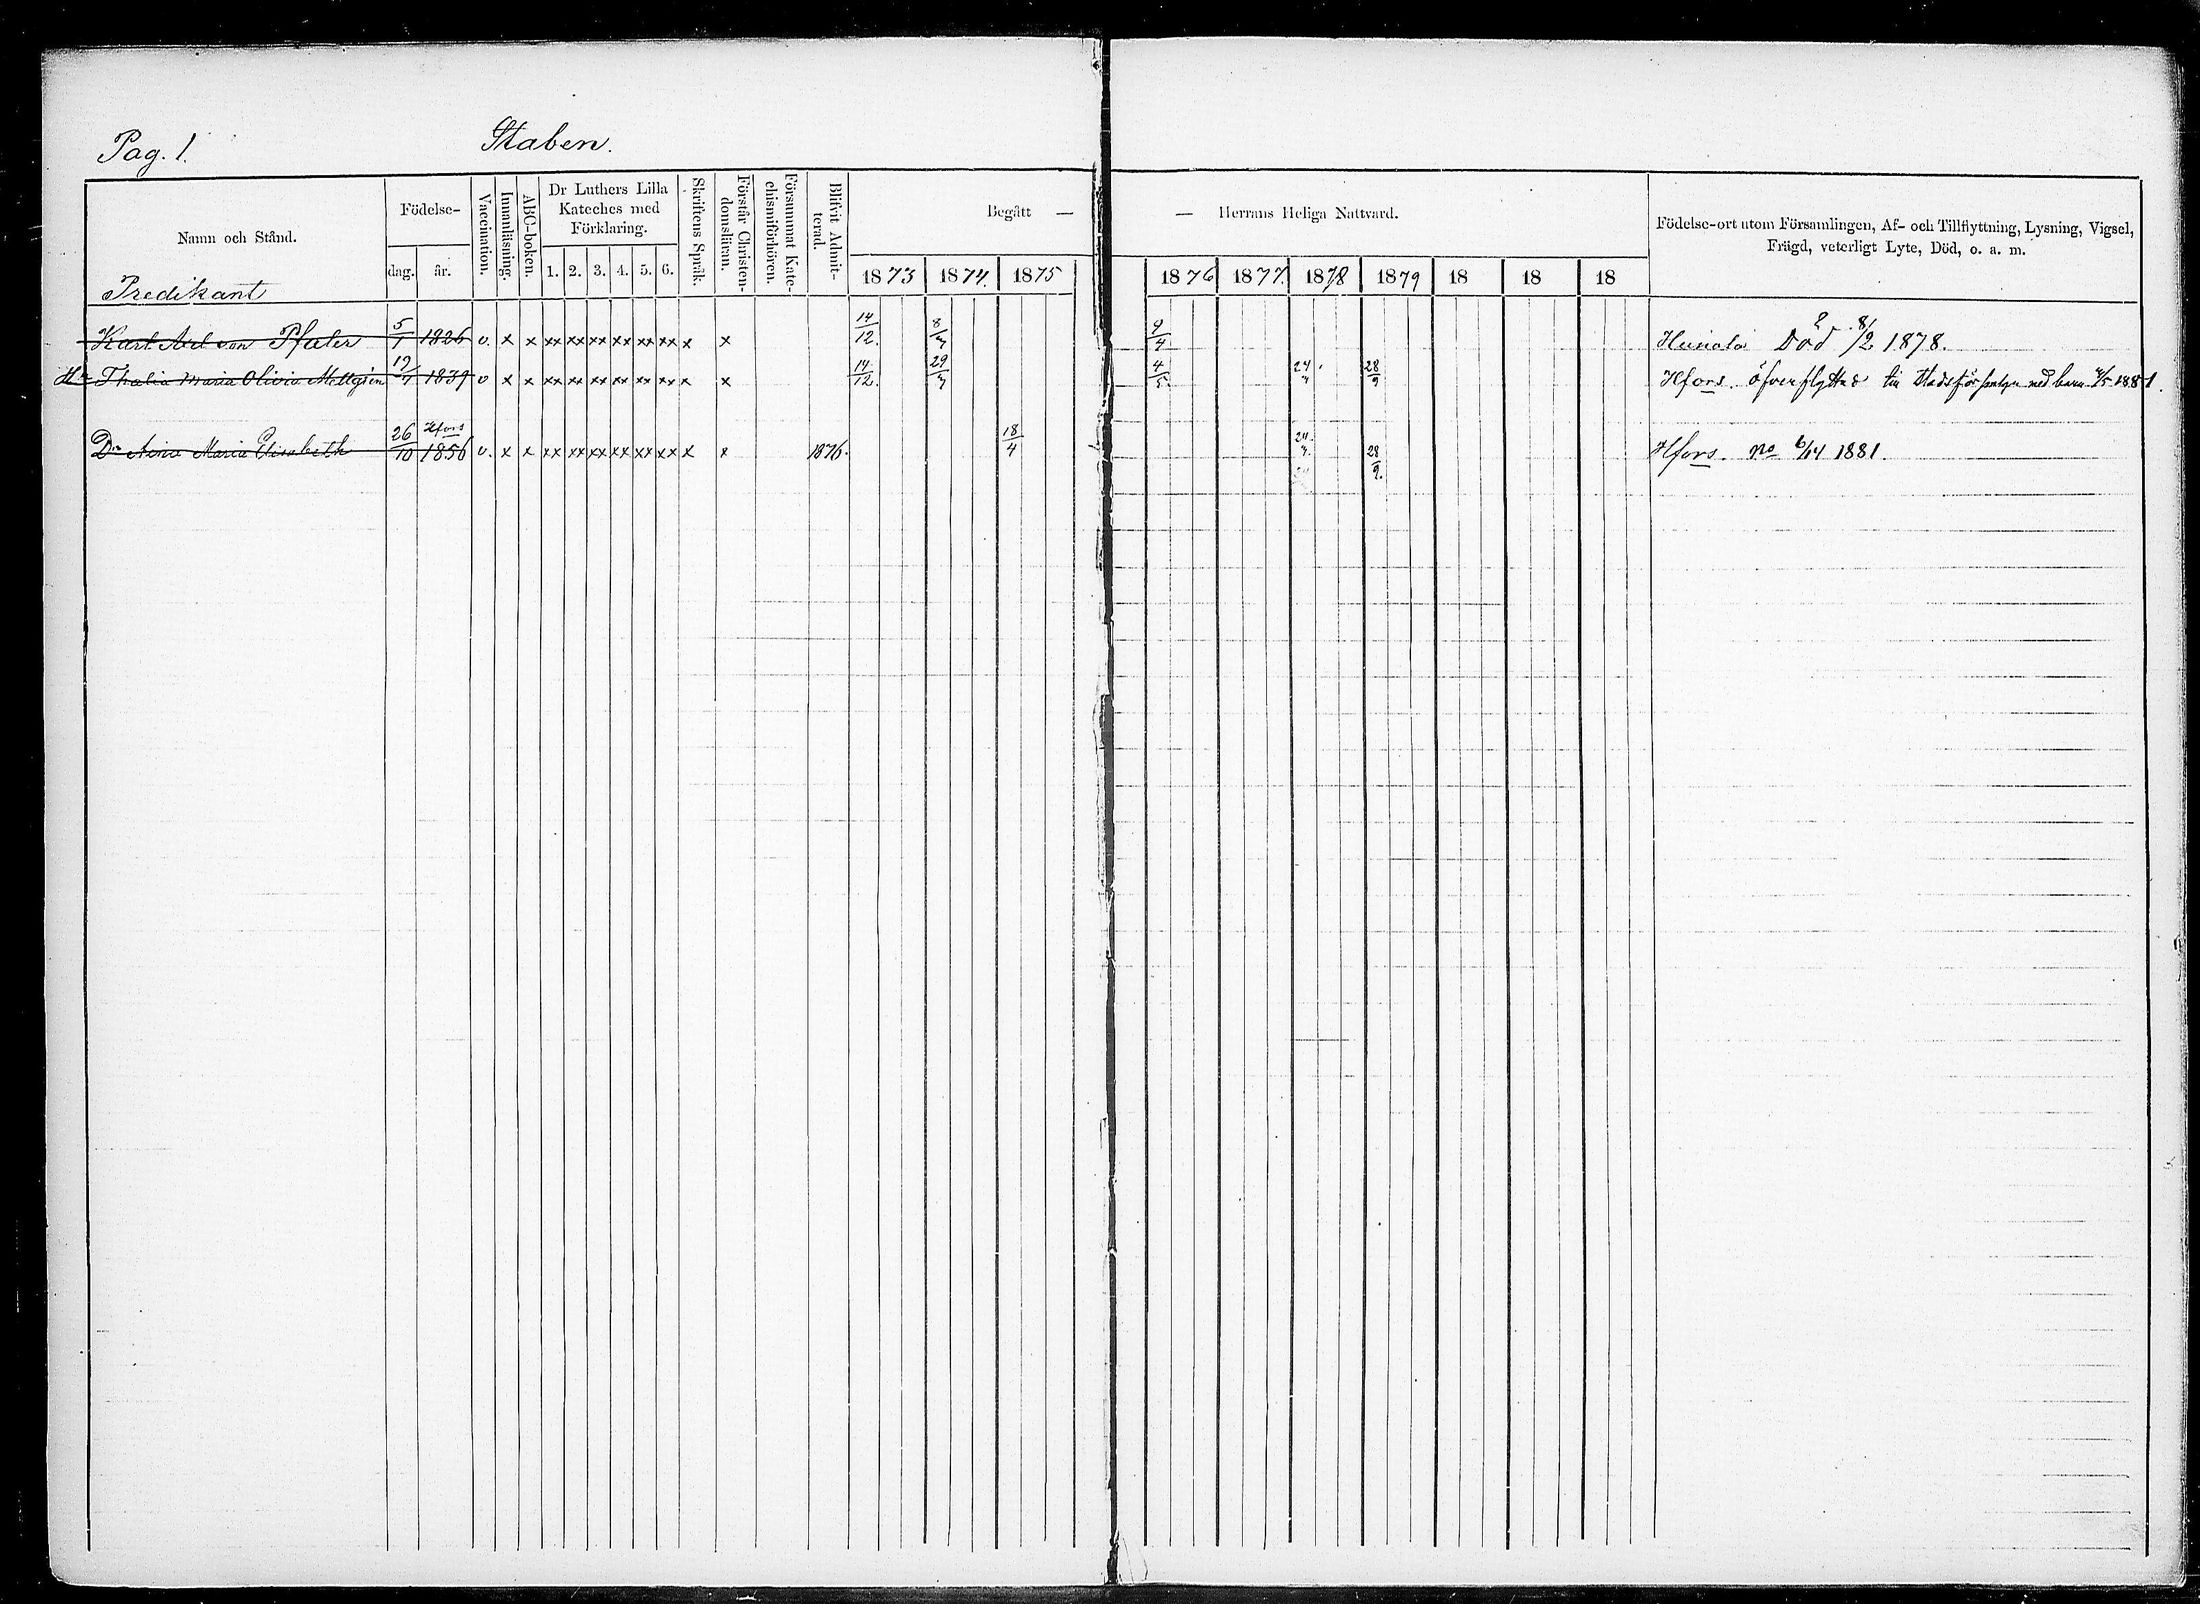 Pag. 1.
Staben.
Namn och Stånd.
Födelse-
dag. år.
Vaccination.
Innanläsning.
ABC-boken.
Dr Luthers Lilla
Kateches med
Förklaring.
1. 2. 3. 4. 5. 6.
Skriftens Språk.
Förstår Christen-
domsläran.
Försummat Kate-
chismiförhören.
Blifvit Admit-
terad.
Begått — — Herrans Heliga Nattvard.
1873 1874. 1875 1876 1877. 1878 1879 18 18 18
Födelse-ort utom Församlingen, Af- och Tillflyttning, Lysning, Vigsel,
Frägd, veterligt Lyte, Död, o. a. m.
Predikant
Karl Axel von Pfaler 5/1 1826 v. x x xx xx xx xx xx xx x x 14/12. 8/3 9/4 Död 8/2 1878.
Hu Thalia Maria Olivia 19/7 1839 v x x xx xx xx xx xx xx x x 14/12. 29/3 4/5 28/9 Hfors. öfverflyttad till 1881.
Hfors
Dr Aina Maria Elisabeth 26/10 1856 v. x x xx xx xx xx xx xx x x 1876. 18/4 28/9. Hfors. No 6/14 1881.